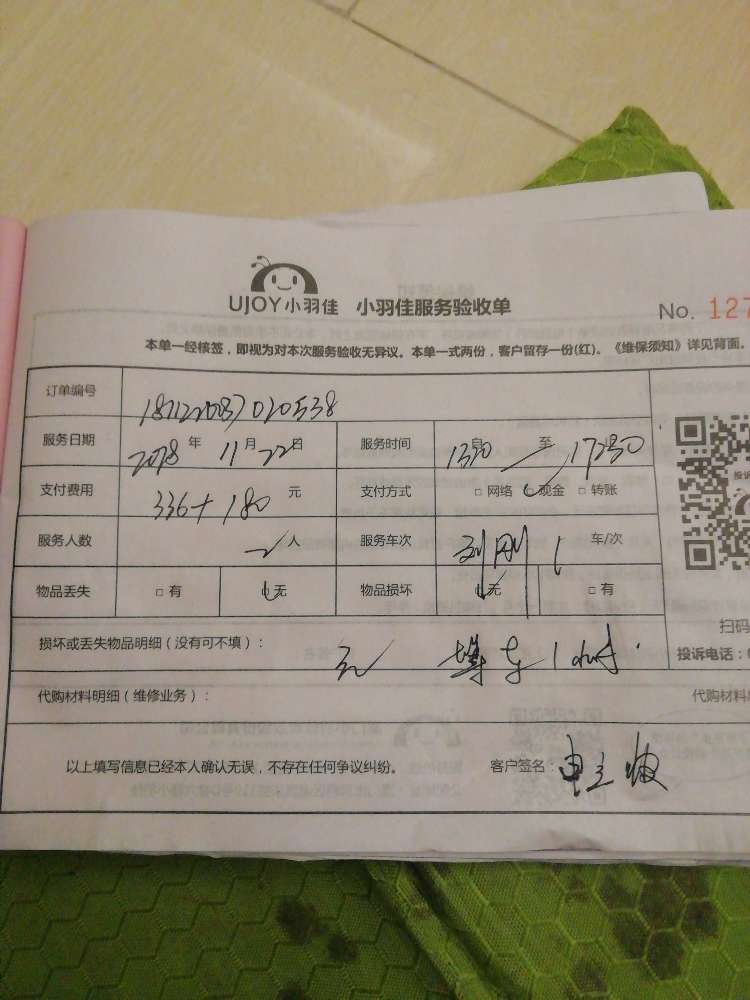 UJOY小羽佳 小羽佳服务验收单
No. 127
本单一经核签，即视为对本次服务验收无异议。本单一式两份，客户留存一份(红)。《维保须知》详见背面。
订单编号
服务日期 2018 年 11 月 22 日 服务时间 1330 至 17230
支付费用 336+180 元 支付方式 □ 网络 现金 □ 转账
服务人数 2 人 服务车次 刘刚 1 车/次
物品丢失 □ 有 无 物品损坏 无 □ 有
损坏或丢失物品明细（没有可不填）： 无 堵车1小时.
扫码
投诉电话：
代购材料明细（维修业务）：
代购材料
以上填写信息已经本人确认无误，不存在任何争议纠纷。 客户签名：